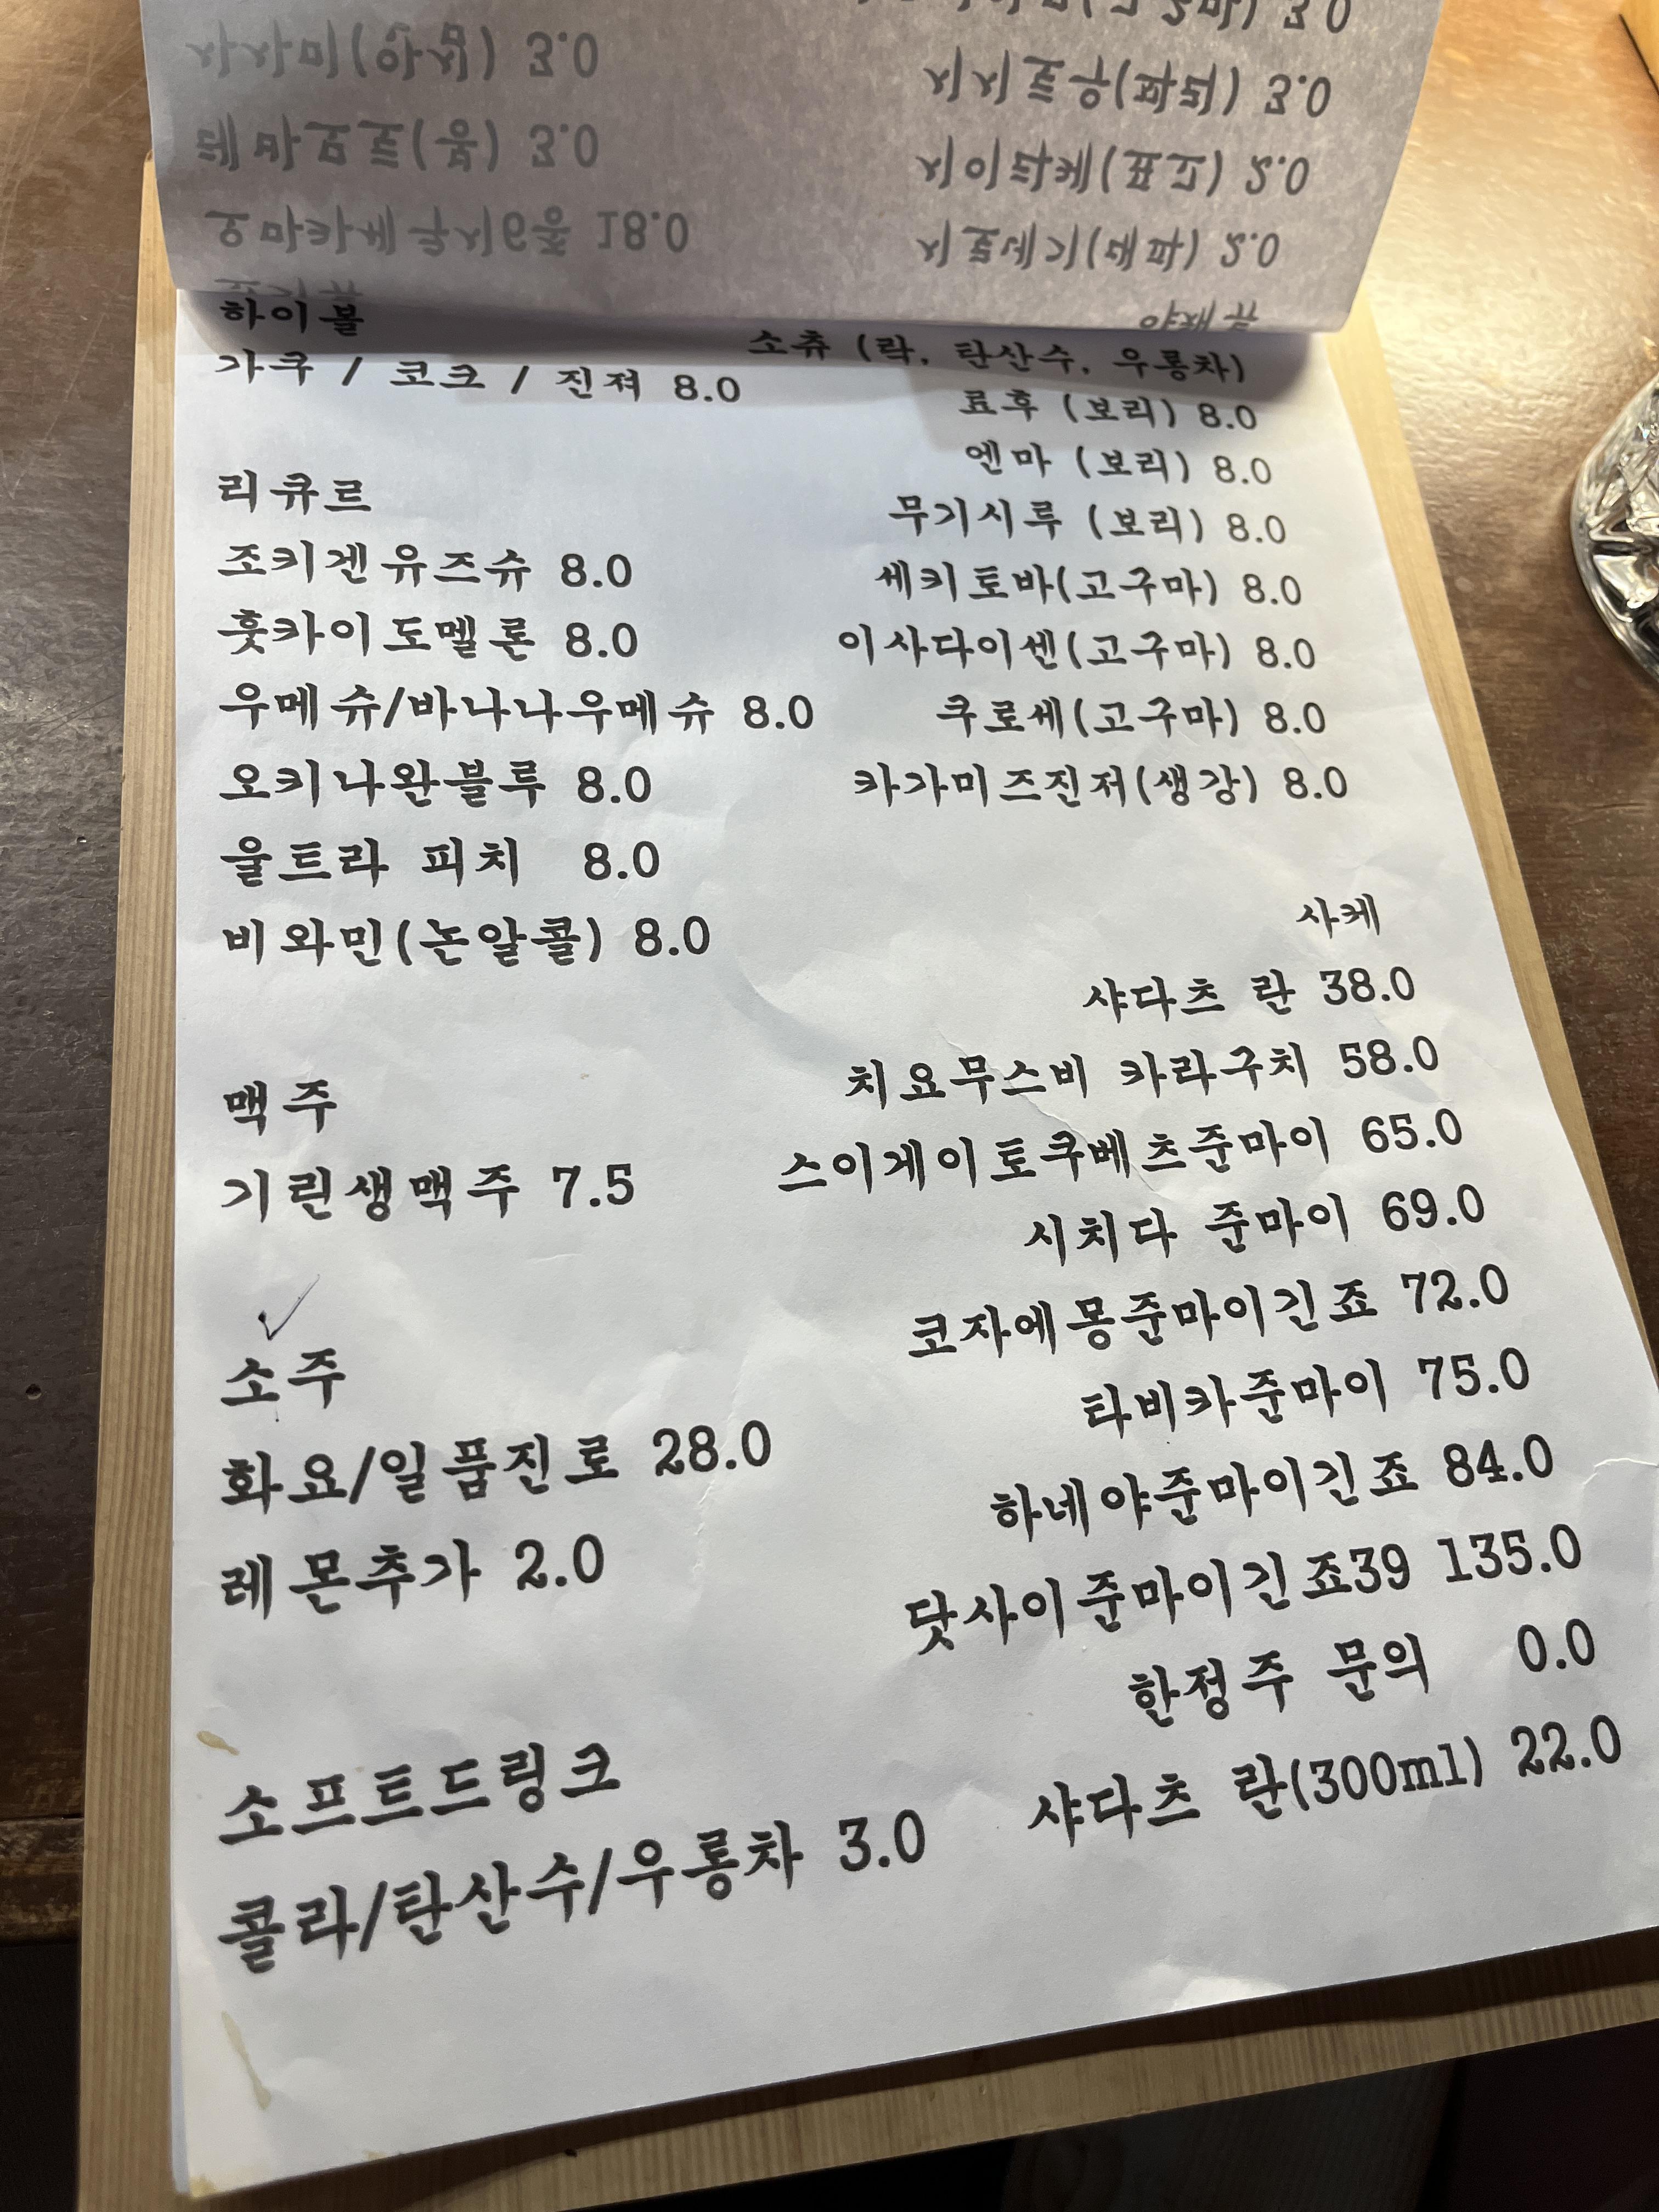 하이볼
가쿠 / 코크 / 진져 8.0
리큐르
조키겐유즈슈 8.0
훗카이도멜론 8.0
우메슈/바나나우메슈 8.0
오키나완블루 8.0
울트라 피치 8.0
비와민(논알콜) 8.0
맥주
기린생맥주 7.5
소주
화요/일품진로 28.0
레몬추가 2.0
소프트드링크
콜라/탄산수/우롱차 3.0
소츄 (락, 탄산수, 우롱차)
료후 (보리) 8.0
엔마 (보리) 8.0
무기시루 (보리) 8.0
세키토바(고구마) 8.0
이사다이센(고구마) 8.0
쿠로세(고구마) 8.0
카가미즈진저(생강) 8.0
사케
샤다츠 란 38.0
치요무스비 카라구치 58.0
스이게이토쿠베츠준마이 65.0
시치다 준마이 69.0
코자에몽준마이긴죠 72.0
타비카준마이 75.0
하네야준마이긴죠 84.0
닷사이준마이긴죠39 135.0
한정주 문의 0.0
샤다츠 란(300ml) 22.0